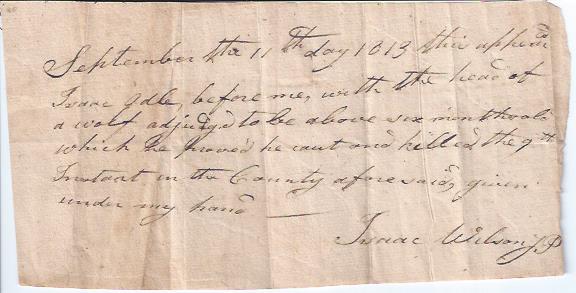 September the 11th day 1813 this appeard
Isaac Idle, before me, with the head of
a wolf adjudgd to be above six months old
which he proved he caut and killed the 9th
Instant in the County aforesaid, given
under my hand
Isaac Wilson JP